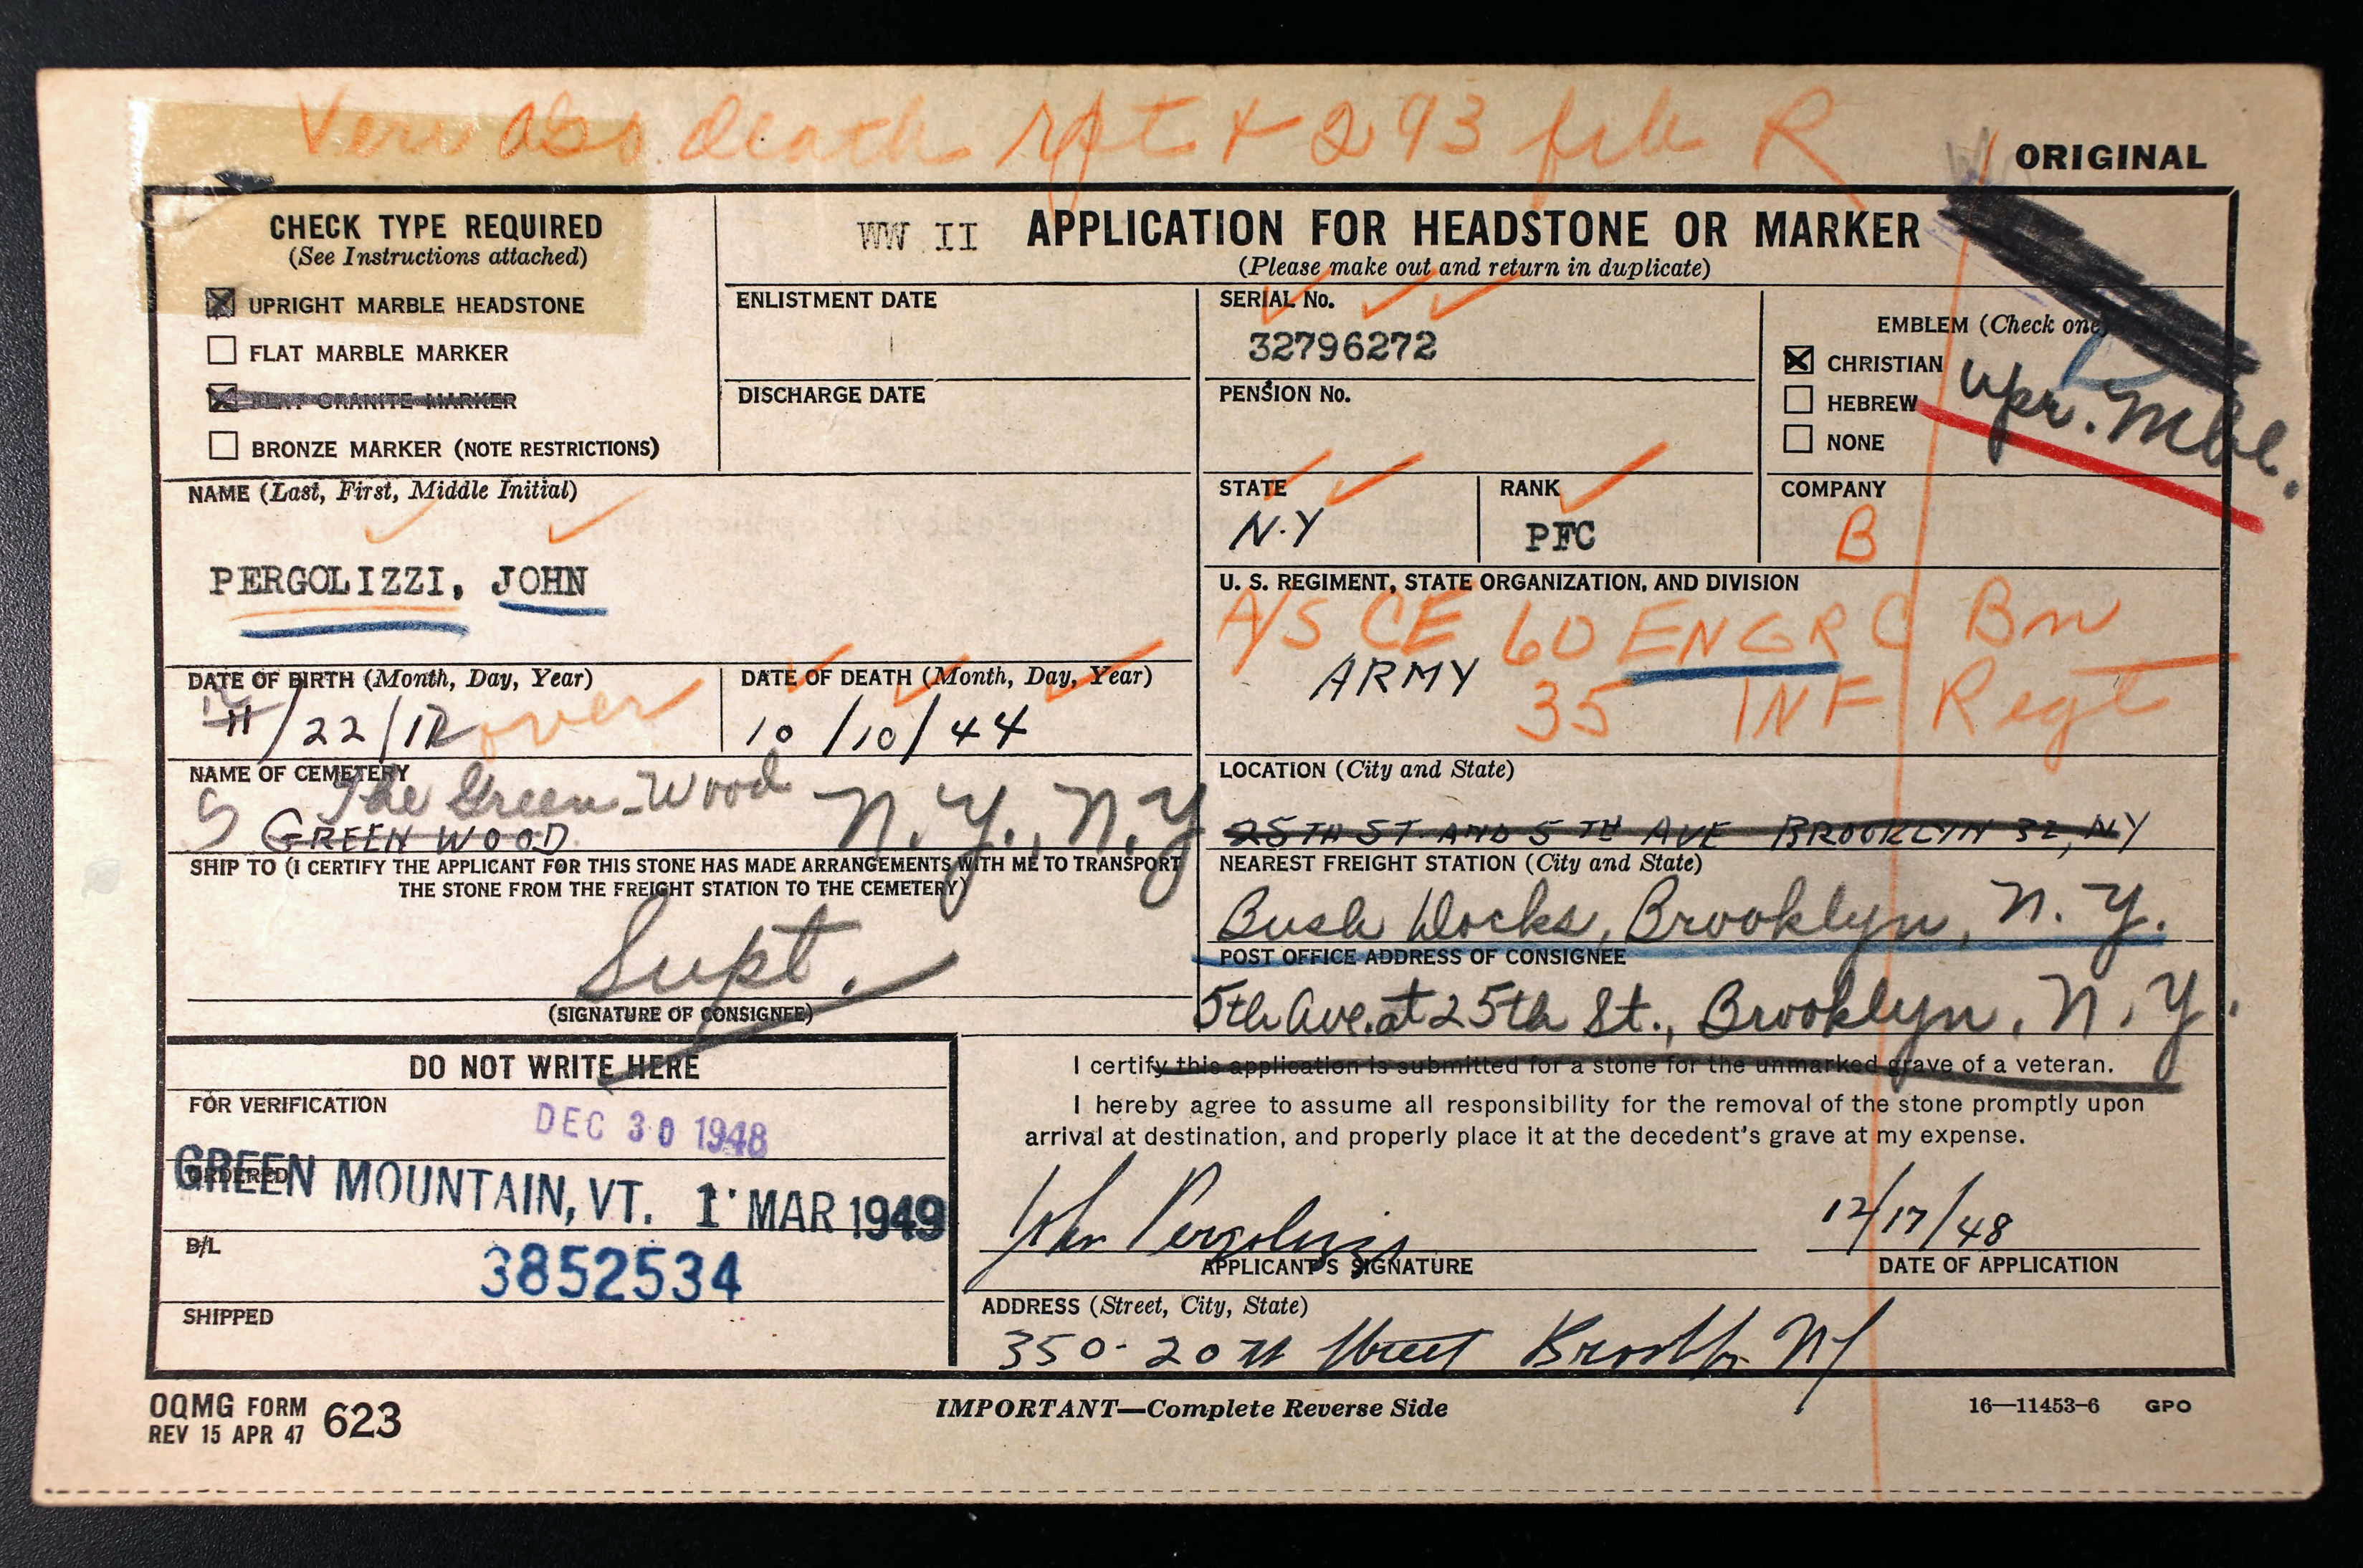 Veri also death rpt + 293 file R
ORIGINAL
CHECK TYPE REQUIRED
(See Instructions attached)
☒ UPRIGHT MARBLE HEADSTONE
☐ FLAT MARBLE MARKER
☒ FLAT GRANITE MARKER
☐ BRONZE MARKER (NOTE RESTRICTIONS)
WW II APPLICATION FOR HEADSTONE OR MARKER
(Please make out and return in duplicate)
ENLISTMENT DATE
DISCHARGE DATE
SERIAL No.
32796272
PENSION No.
EMBLEM (Check one)
☒ CHRISTIAN
☐ HEBREW
☐ NONE
Upr. Mbl.
NAME (Last, First, Middle Initial)
PERGOLIZZI, JOHN
STATE
N.Y
RANK
PFC
COMPANY
B
U. S. REGIMENT, STATE ORGANIZATION, AND DIVISION
A/S CE 60 ENGR C Bn
ARMY
35 INF Regt
DATE OF BIRTH (Month, Day, Year)
11/22/12 over
DATE OF DEATH (Month, Day, Year)
10/10/44
NAME OF CEMETERY
The Green-Wood N.Y., N.Y
S GREEN WOOD
LOCATION (City and State)
25TH ST AND 5TH AVE BROOKLYN 32, NY
SHIP TO (I CERTIFY THE APPLICANT FOR THIS STONE HAS MADE ARRANGEMENTS WITH ME TO TRANSPORT
THE STONE FROM THE FREIGHT STATION TO THE CEMETERY)
Supt.
(SIGNATURE OF CONSIGNEE)
NEAREST FREIGHT STATION (City and State)
Bush Docks, Brooklyn, N.Y.
POST OFFICE ADDRESS OF CONSIGNEE
5th Ave. at 25th St., Brooklyn, N.Y.
DO NOT WRITE HERE
FOR VERIFICATION
DEC 30 1948
ORDERED
GREEN MOUNTAIN, VT. 1 MAR 1949
B/L
3852534
SHIPPED
I certify this application is submitted for a stone for the unmarked grave of a veteran.
I hereby agree to assume all responsibility for the removal of the stone promptly upon
arrival at destination, and properly place it at the decedent's grave at my expense.
John Pergolizzi
APPLICANT'S SIGNATURE
12/17/48
DATE OF APPLICATION
ADDRESS (Street, City, State)
350-20TH Street Brooklyn NY
OQMG FORM 623
REV 15 APR 47
IMPORTANT—Complete Reverse Side
16—11453-6 GPO